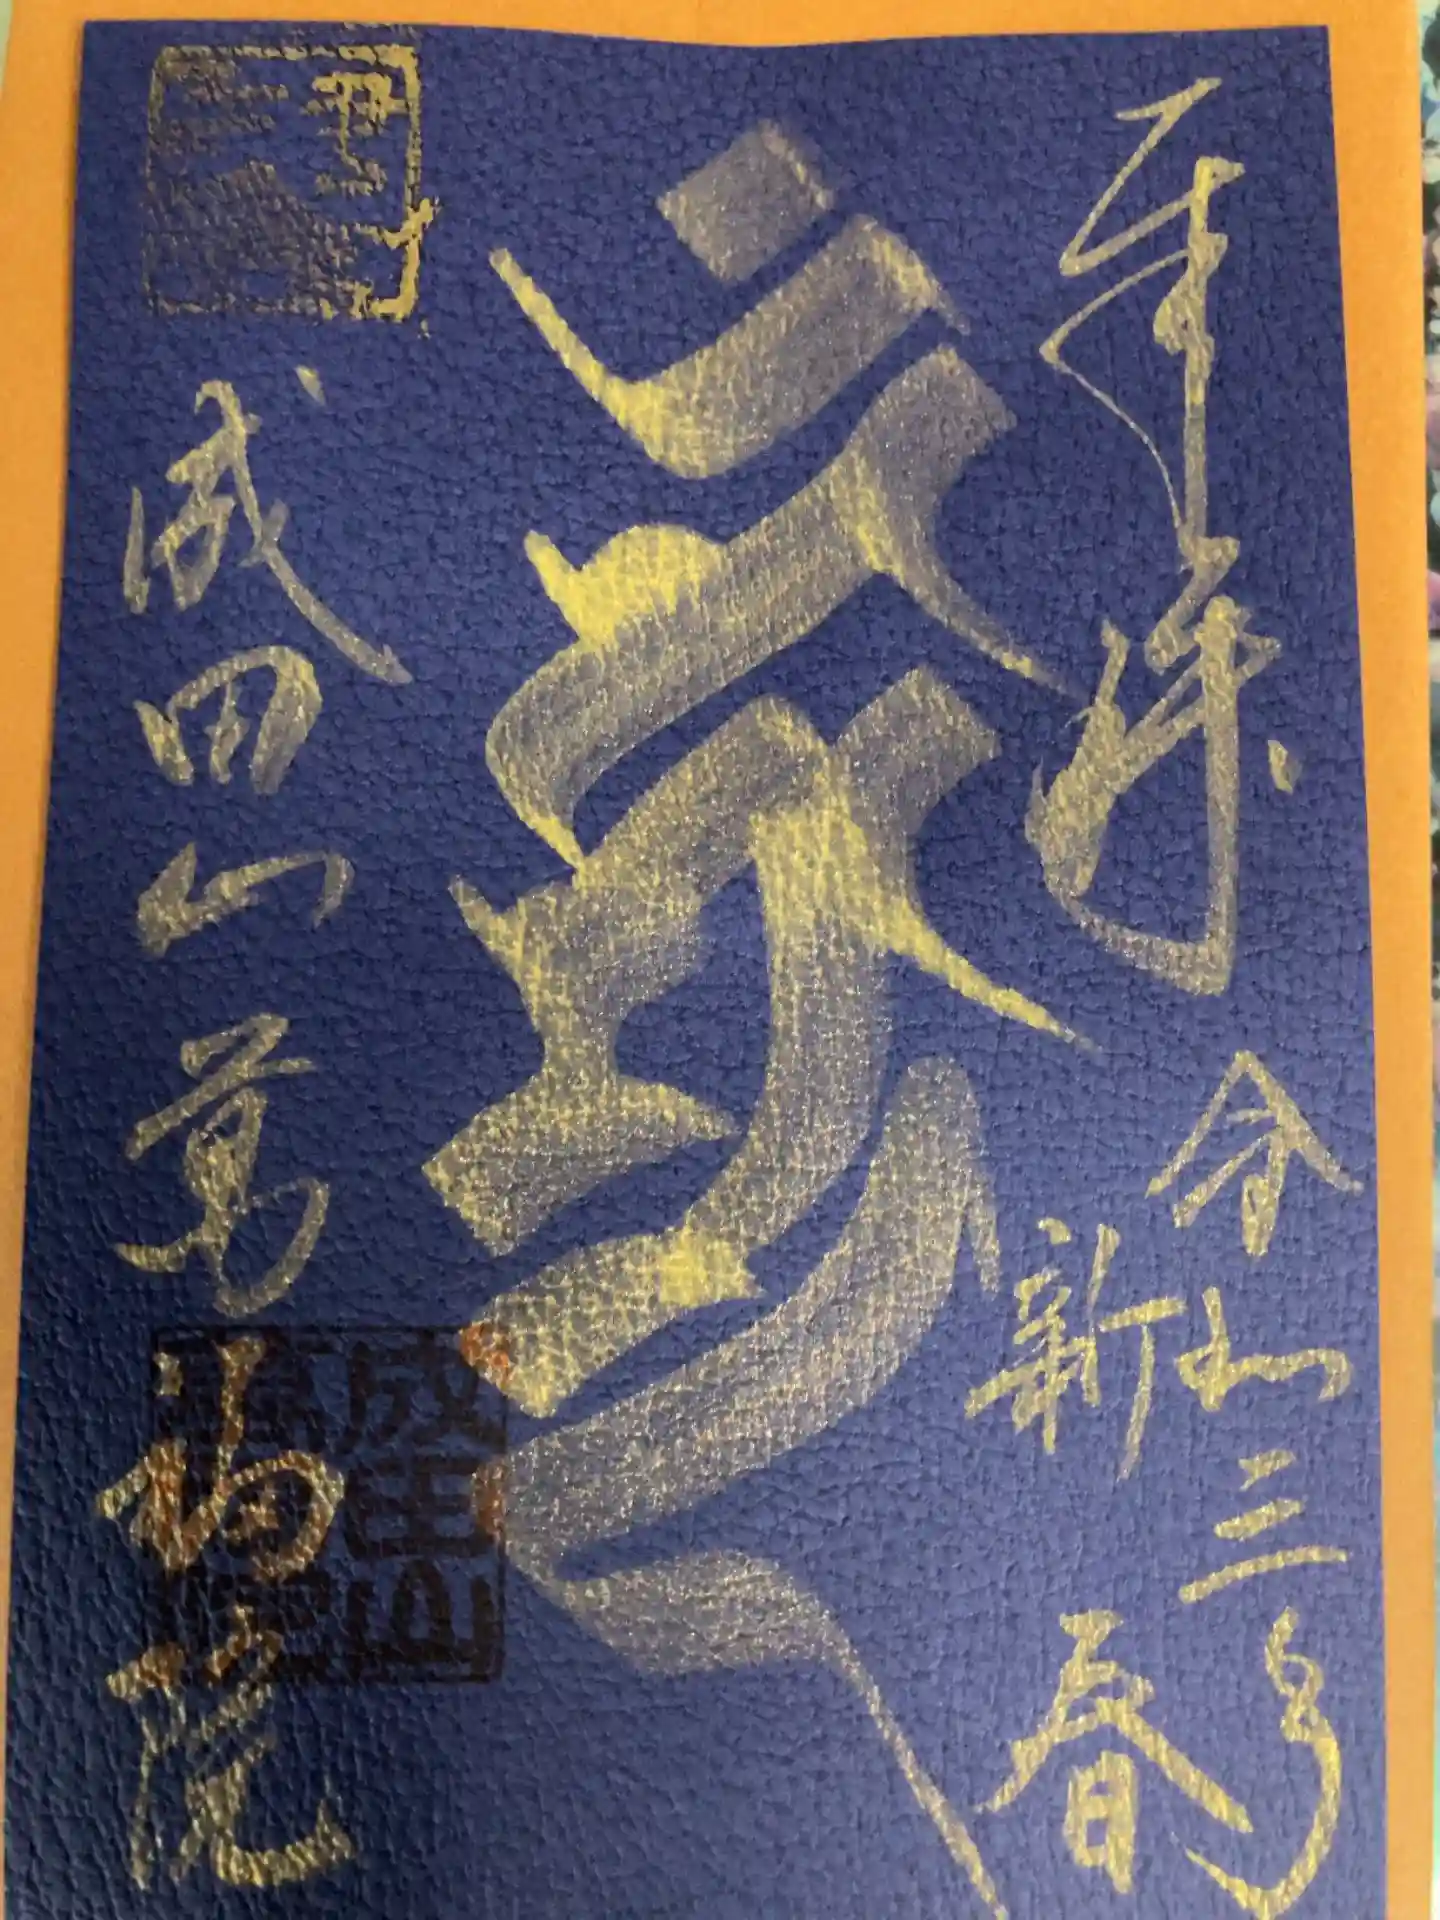 奉拝
令和三年
新春
成田山萬福院
成田山